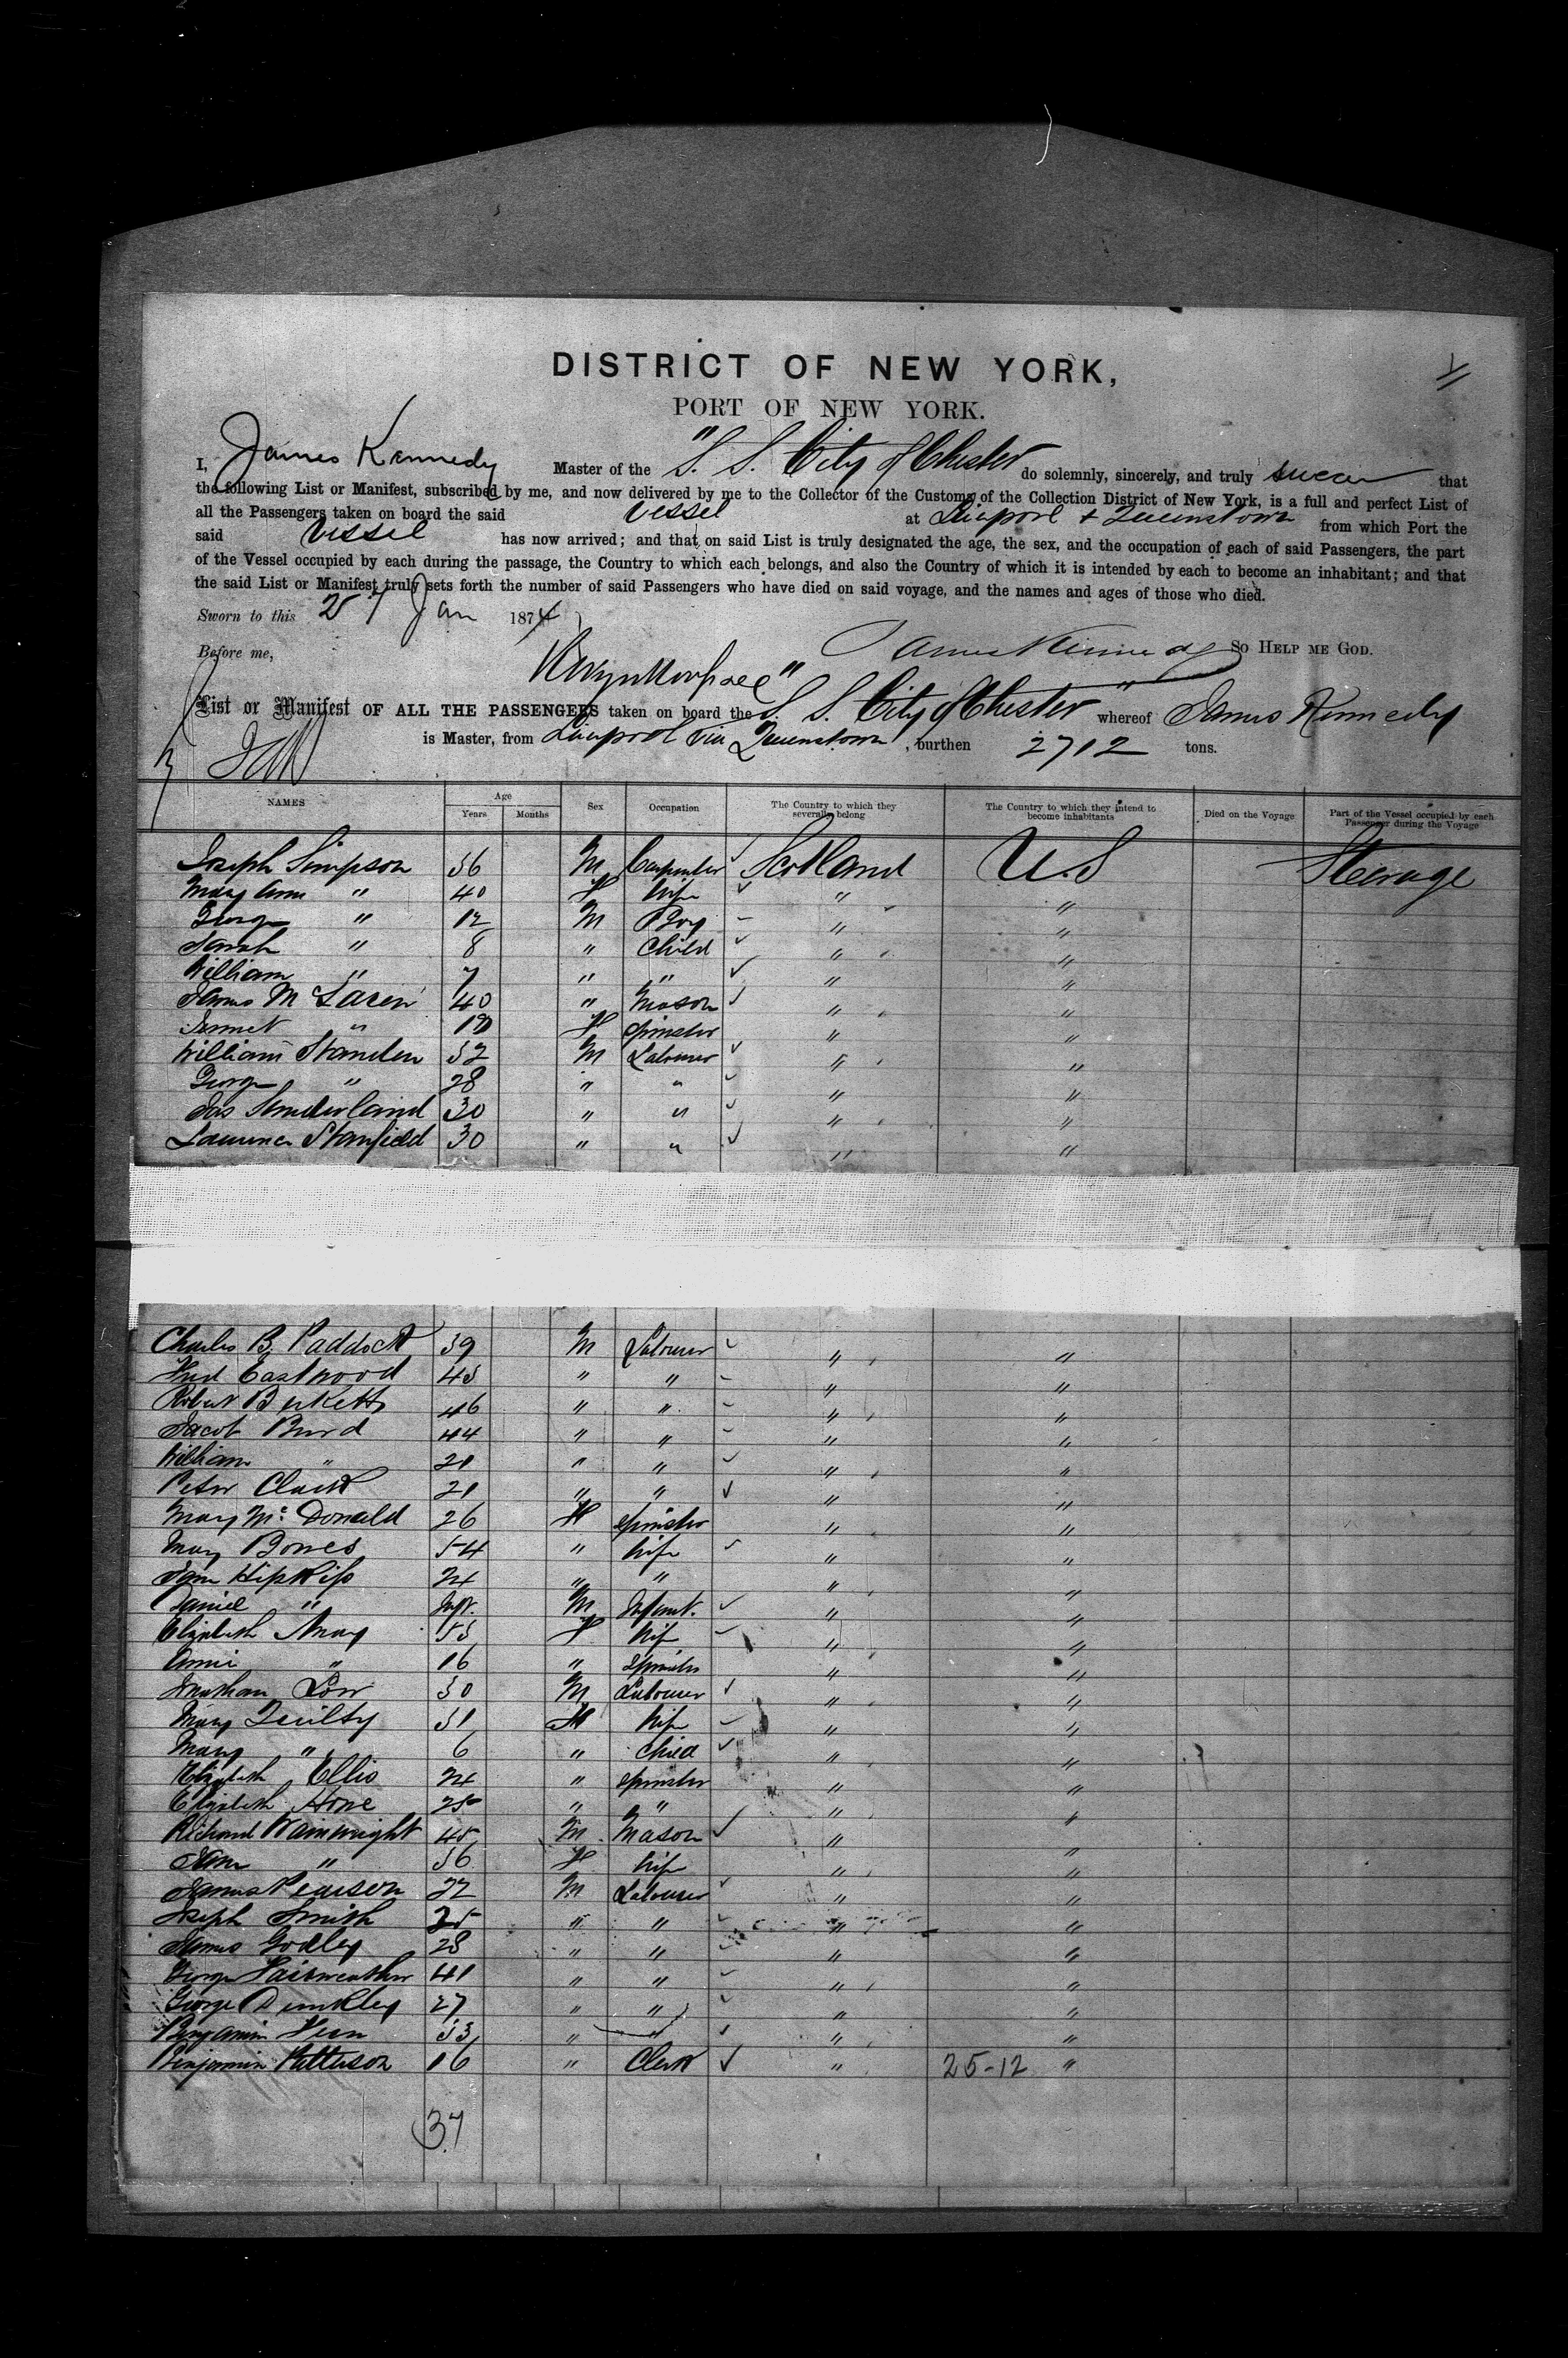 DISTRICT OF NEW YORK,
PORT OF NEW YORK.
I, James Kennedy Master of the "S. S. City of Chester do solemnly, sincerely, and truly swear that
the following List or Manifest, subscribed by me, and now delivered by me to the Collector of the Customs of the Collection District of New York, is a full and perfect List of
all the Passengers taken on board the said Vessel at Liverpool + Queenstown from which Port the
said Vessel has now arrived; and that on said List is truly designated the age, the sex, and the occupation of each of said Passengers, the part
of the Vessel occupied by each during the passage, the Country to which each belongs, and also the Country of which it is intended by each to become an inhabitant; and that
the said List or Manifest truly sets forth the number of said Passengers who have died on said voyage, and the names and ages of those who died.
Sworn to this 27 Jan 1874
Before me, James Kennedy SO HELP ME GOD.
List or Manifest OF ALL THE PASSENGERS taken on board the "S. S. City of Chester" whereof James Kennedy
is Master, from Liverpool via Queenstown, burthen 2712 tons.
NAMES Age Years Months Sex Occupation The Country to which they severally belong The Country to which they intend to become inhabitants Died on the Voyage Part of the Vessel occupied by each Passenger during the Voyage
Joseph Simpson 36 M Carpenter Scotland U.S Steerage
Mary Ann " 40 F Wife " "
George " 12 M Boy " "
Sarah " 8 " Child " "
William " 7 " " " "
James McLaren 40 " Mason " "
Jannet " 19 F Spinster " "
William Standen 32 M Labourer " "
George " 28 " " " "
Jas Sunderland 30 " " " "
Laurence Stanfield 30 " " " "
Charles B. Paddock 39 M Labourer " "
Fred Eastwood 43 " " " "
Robert Birketts 46 " " " "
Jacob Burd 44 " " " "
William " 21 " " " "
Peter Clark 21 " " " "
Mary McDonald 26 F Spinster " "
Mary Bones 54 " Wife " "
Jane Hipkiss 24 " " " "
Daniel " Inft. M Infant. " "
Elizabeth 53 F Wife " "
Annie " 16 " Spinster " "
Jonathan Low 30 M Labourer " "
Mary Quilty 31 F Wife " "
Mary " 6 " Child " "
Elizabeth Ellis 24 " Spinster " "
Elizabeth Hone 25 " " " "
Richard Wainwright 45 M Mason " "
Jane " 36 F Wife " "
James Pearson 22 M Labourer " "
Joseph Smith 25 " " " "
James Godley 28 " " " "
George Fairweather 41 " " " "
George Dunkley 27 " " " "
Benjamin 33 " " "
Benjamin Patterson 16 " Clerk " 25-12 "
37